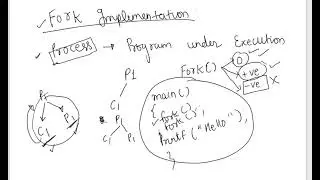 Fork Implementation
Process → Program under Execution
P1
C1
C1 P1
P1
C1
P1
Fork()
0
+ve
-ve X
main()
{ fork();
fork();
printf("Hello");
}